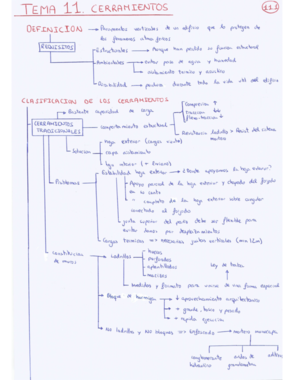 TEMA 11. CERRAMIENTOS
11.1
DEFINICIÓN → Paramentos verticales de un edificio que lo protegen de
los fenómenos atmosféricos
REQUISITOS
→ Estructurales → Aunque han perdido su función estructural
→ Ambientales → evitar paso de agua y humedad
→ aislamiento térmico y acústico
→ Durabilidad → perdurar durante toda la vida útil del edificio
CLASIFICACIÓN DE LOS CERRAMIENTOS
→ Bastante capacidad de carga
CERRAMIENTOS TRADICIONALES
→ comportamiento estructural
→ Compresión ↑
→ Tracción ↓↓
→ Flexo-tracción ↓
→ Resistencia ladrillo ≠ Resist del sistema
→ Solución
→ hoja exterior (carga viento)
→ capa aislamiento
→ hoja interior
→ Problemas
→ Estabilidad hoja exterior → ¿Dónde apoyamos la hoja exterior?
→ Apoyo parcial de la hoja exterior y chapado del forjado
en su canto
→ completo de la hoja exterior sobre angular
conectado al forjado
→ junta superior del paño debe ser flexible para
evitar daños por desplazamientos
→ Cargas térmicas → necesarias juntas verticales (max 12m)
→ Constitución de muros
→ Ladrillos
→ huecos
→ perforados
→ aplantillados
→ macizos
→ medidas y formato para unirse de una forma especial
Ley de trabas
→ Bloque de hormigón
→ ↓ aprovechamiento arquitectónico
→ + grande, basto y pesado
→ + rápida ejecución
→ Los ladrillos y los bloques son unificados → mortero monocapa
conglomerante hidráulico
áridos de granulometría
aditivos